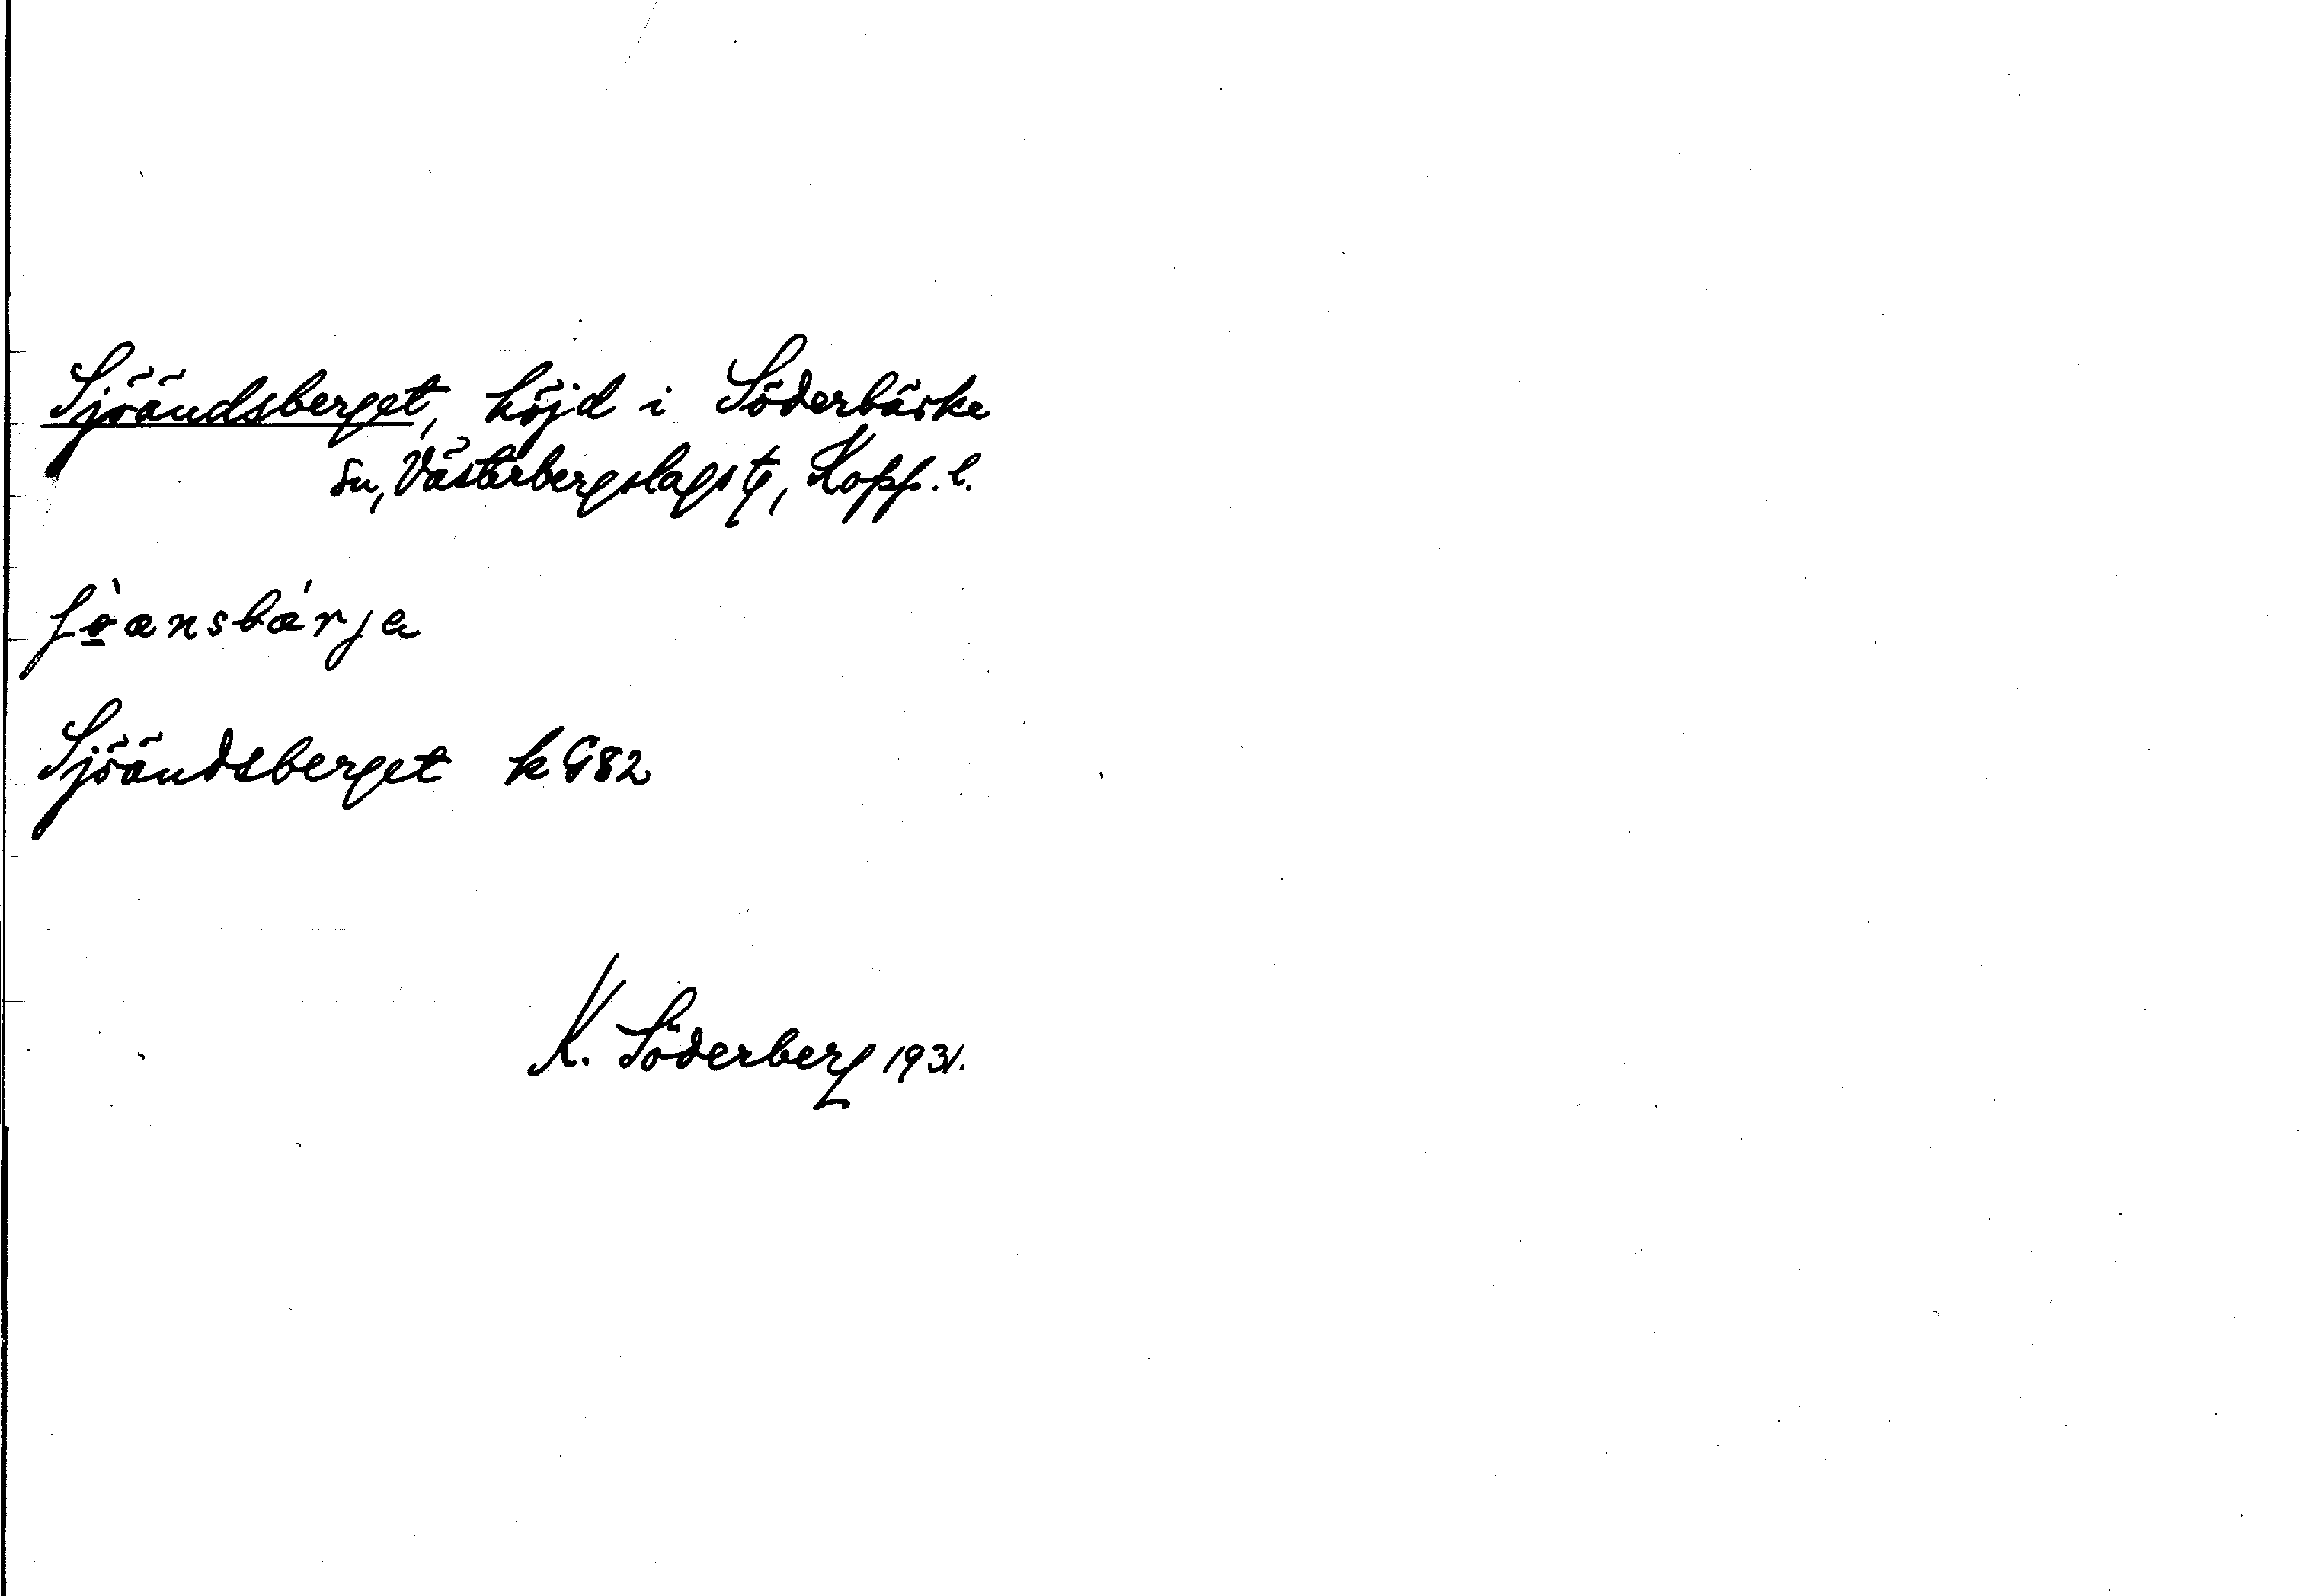 Sjöändsberget, höjd i Söderbärke
sn, Västerbergslags t, Kopp. l.
ʃø̀ansbárja
Sjöändsberget k G82
K. Söderberg 1931.